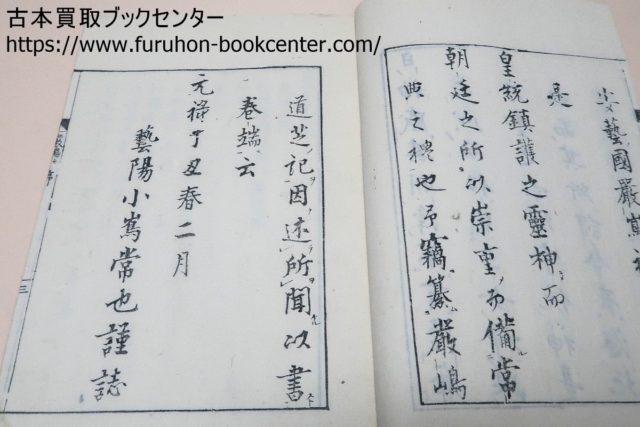 古本買取ブックセンター
https://www.furuhon-bookcenter.com/
安藝國嚴
是
皇統鎮護之靈神而
朝廷之所以崇重而備常
典之禮也予竊纂嚴嶋
道芝記因述所聞以書
卷端云
元祿丁丑春二月
藝陽小嶌常也謹誌
三